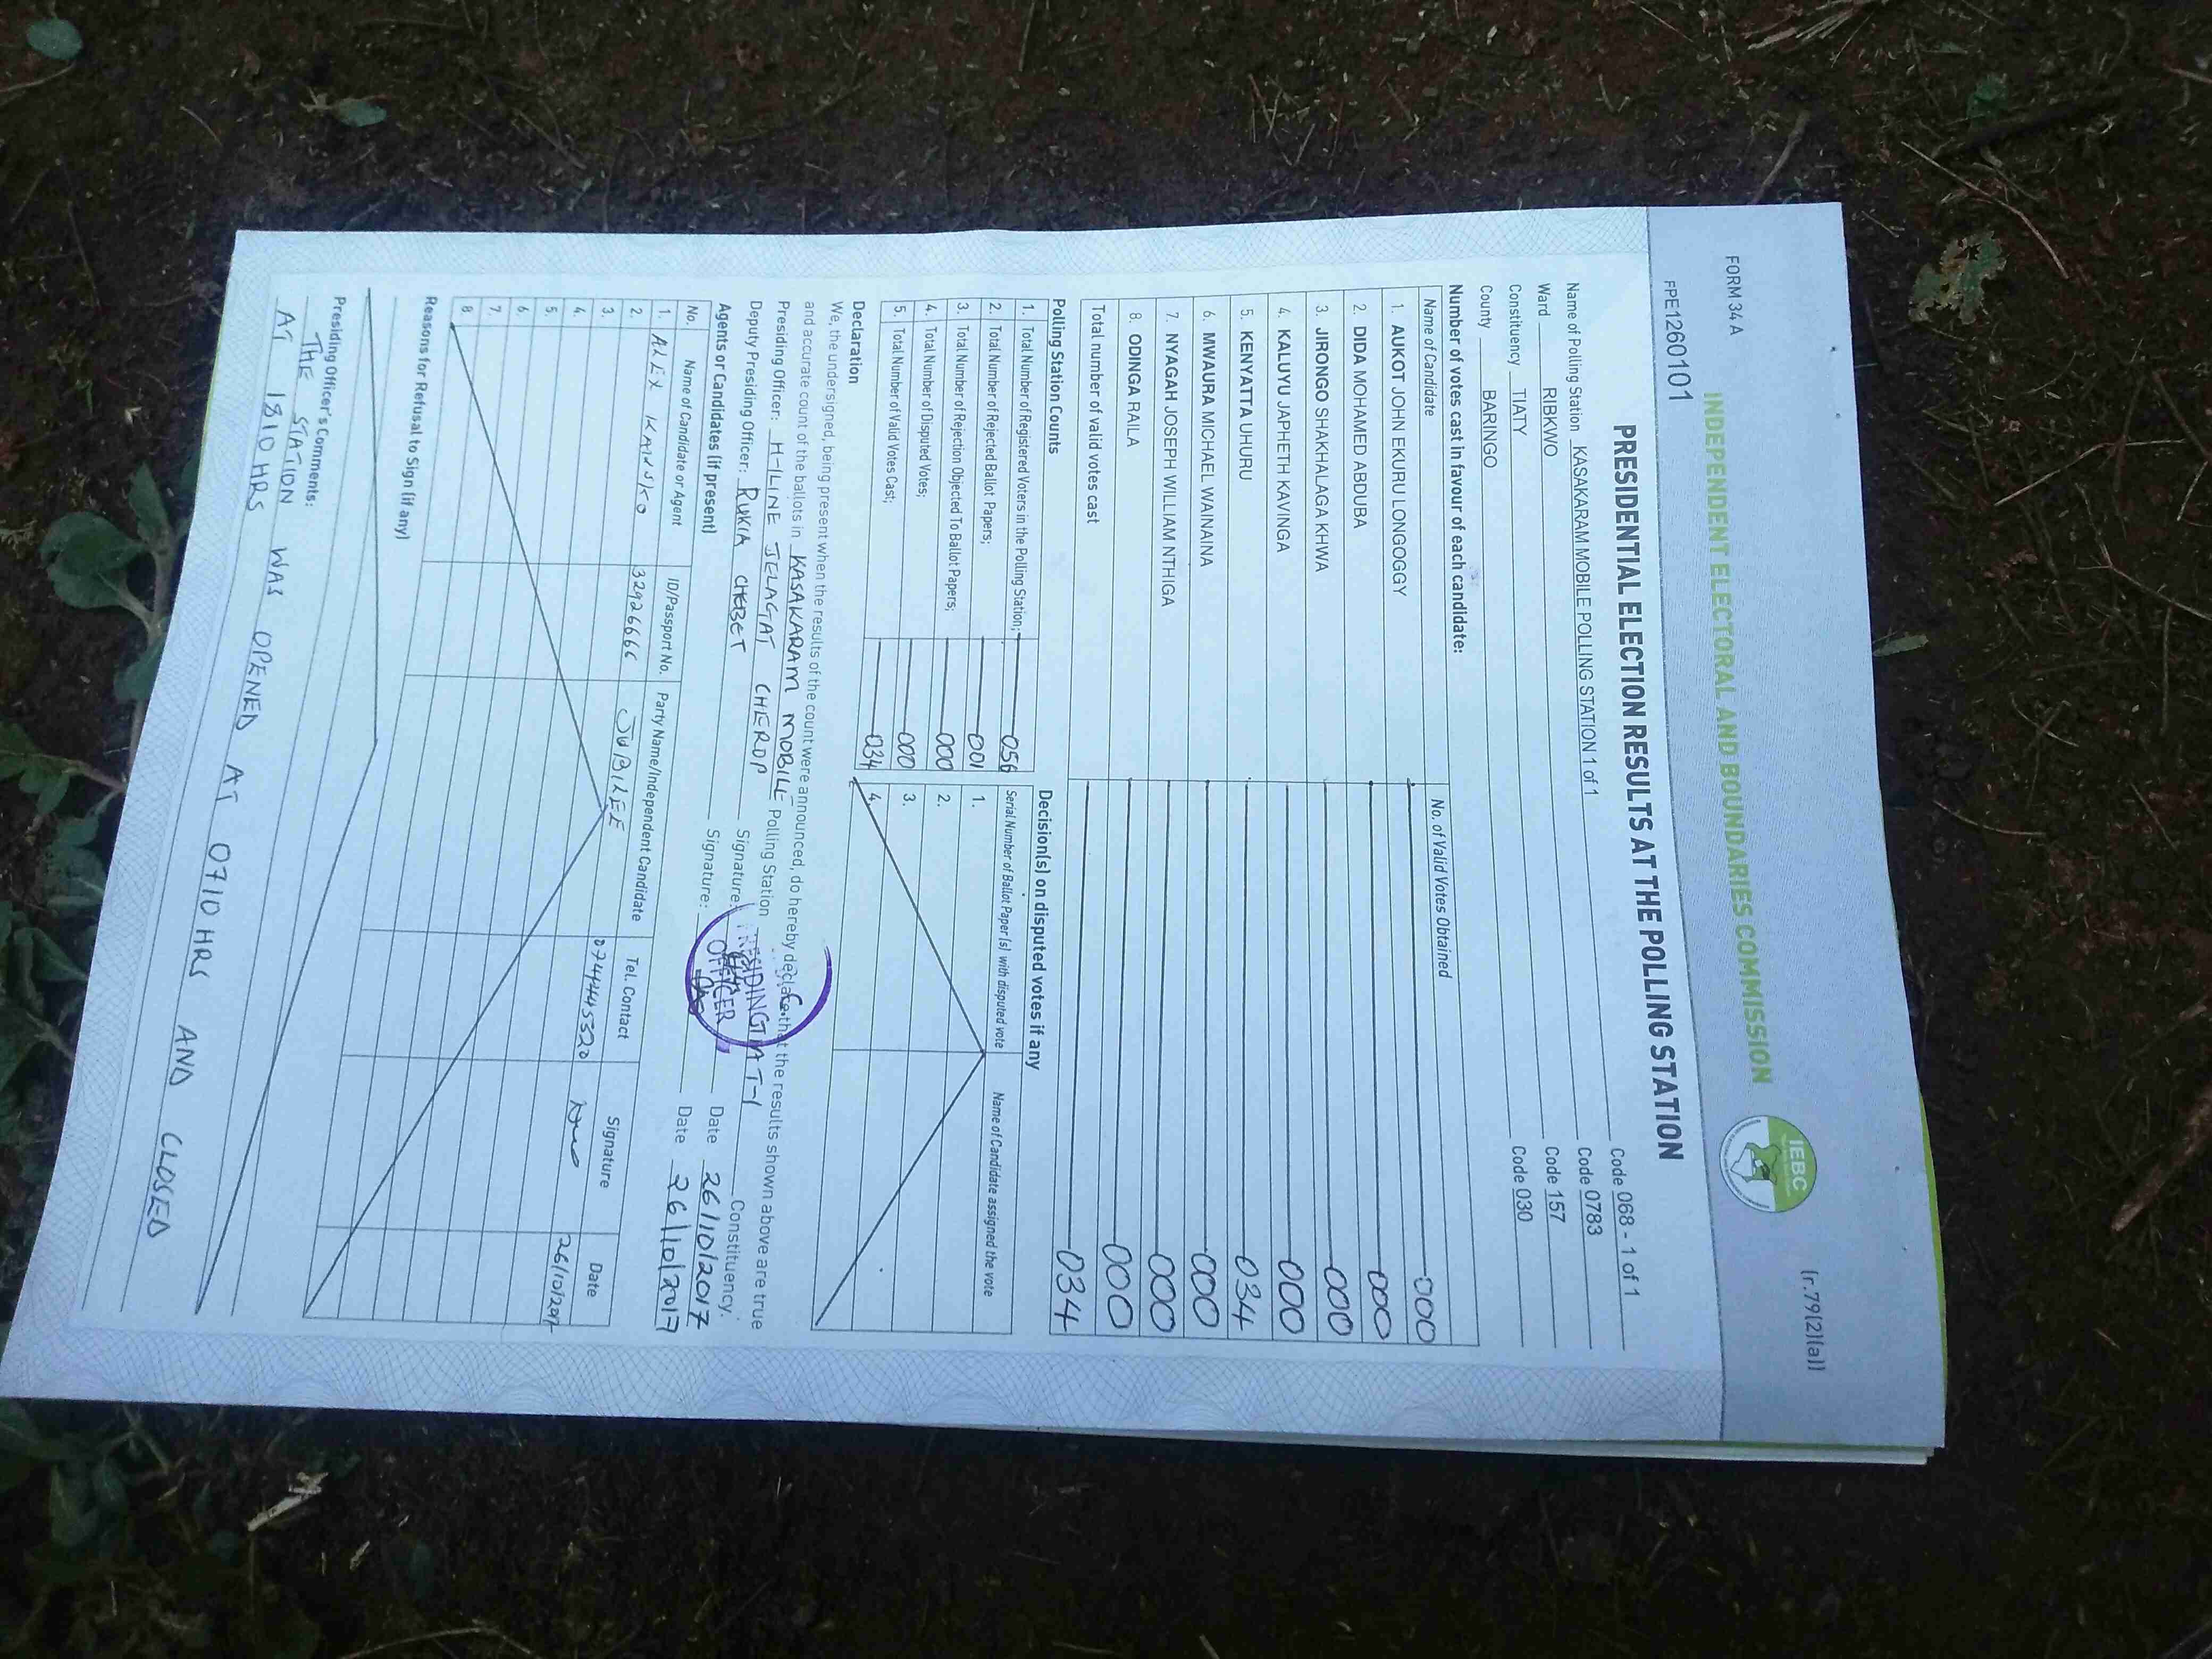 FORM 34 A
(r.79(2)(a))
INDEPENDENT ELECTORAL AND BOUNDARIES COMMISSION
IEBC
FPE1260101
PRESIDENTIAL ELECTION RESULTS AT THE POLLING STATION
Name of Polling Station KASAKARAM MOBILE POLLING STATION 1 of 1 Code 068 - 1 of 1
Ward RIBKWO Code 0783
Constituency TIATY Code 157
County BARINGO Code 030
Number of votes cast in favour of each candidate:
Name of Candidate No. of Valid Votes Obtained
1. AUKOT JOHN EKURU LONGOGGY 000
2. DIDA MOHAMED ABDUBA 000
3. JIRONGO SHAKHALAGA KHWA 000
4. KALUYU JAPHETH KAVINGA 000
5. KENYATTA UHURU 034
6. MWAURA MICHAEL WAINAINA 000
7. NYAGAH JOSEPH WILLIAM NTHIGA 000
8. ODINGA RAILA 000
Total number of valid votes cast 034
Polling Station Counts
1. Total Number of Registered Voters in the Polling Station; 056
2. Total Number of Rejected Ballot Papers; 001
3. Total Number of Rejection Objected To Ballot Papers; 000
4. Total Number of Disputed Votes; 000
5. Total Number of Valid Votes Cast; 034
Decision(s) on disputed votes if any
Serial Number of Ballot Paper (s) with disputed vote Name of Candidate assigned the vote
1.
2.
3.
4.
Declaration
We, the undersigned, being present when the results of the count were announced, do hereby declare that the results shown above are true
and accurate count of the ballots in KASAKARAM MOBILE Polling Station Constituency.
Presiding Officer: HILINE JELAGAT CHEROP Signature: Date 26/10/2017
Deputy Presiding Officer: RUKIA CHEBET Signature: Date 26/10/2017
PRESIDING
OFFICER
Agents or Candidates (if present)
No. Name of Candidate or Agent ID/Passport No. Party Name/Independent Candidate Tel. Contact Signature Date
1. ALEX 32926666 JUBILEE 26/10/2017
2.
3.
4.
5.
6.
7.
8.
Reasons for Refusal to Sign (if any)
Presiding Officer's Comments:
THE STATION WAS OPENED AT 0710 HRS AND CLOSED
AT 1810 HRS